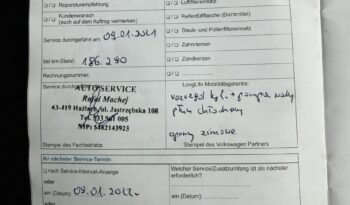 Reparaturempfehlung
Kundenwunsch
(auch auf dem Auftrag vermerken)
Luftfiltereinsatz
Reifenfüllflasche (Dichtmittel)
Staub- und Pollenfiltereinsatz
Zahnriemen
Zündkerzen
Service durchgeführt am: 09.01.2021
bei km-Stand: 186.290
Rechnungsnummer:
Service durchgeführt
AUTOSERVICE
Rafał Machej
43-419 Hażlach, ul. Jastrzębska 108
Tel. 693 901 005
Stempel des Fachbetriebs
LongLife Mobilitätsgarantie:
rozrząd kpl. + pompa wody
płyn chłodniczy
opony zimowe
Stempel des Volkswagen Partners
Ihr nächster Service-Termin
nach Service-Intervall-Anzeige
oder
am (Datum): 09.01.2022
oder
am (Datum)
Welcher Service/Zusatzumfang ist als nächster
erforderlich?